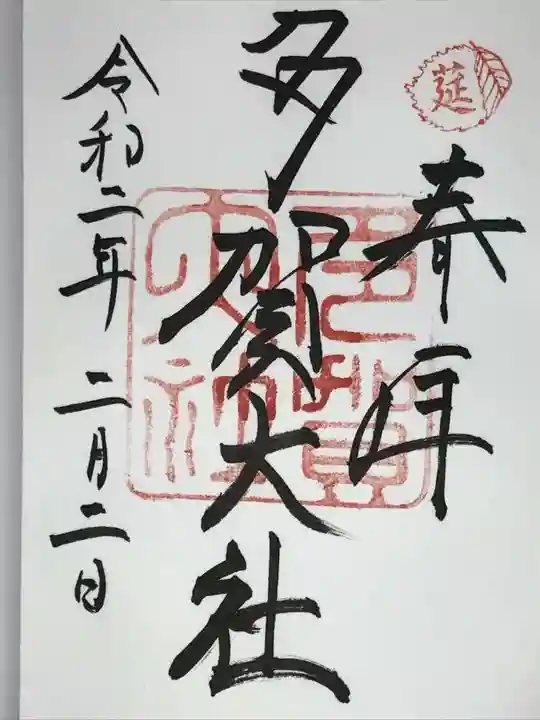 莚
奉拝
多賀大社
多賀大社
令和二年 二月二日